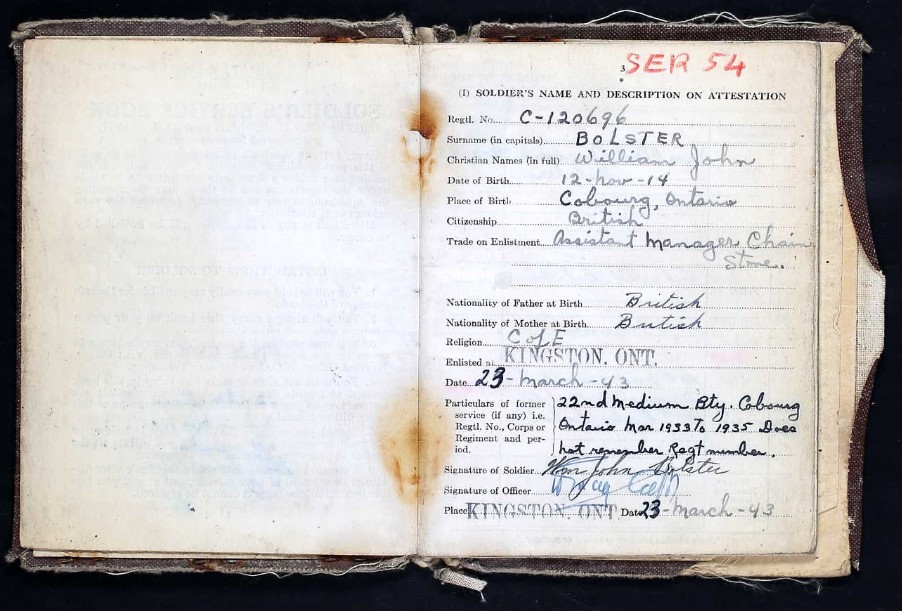 3 SER 54
(I) SOLDIER'S NAME AND DESCRIPTION ON ATTESTATION
Regtl. No. C-120696
Surname (in capitals) BOLSTER
Christian Names (in full) William John
Date of Birth 12-Nov-14
Place of Birth Cobourg, Ontario
Citizenship British
Trade on Enlistment Assistant Manager Chain
Store.
Nationality of Father at Birth British
Nationality of Mother at Birth British
Religion C of E
Enlisted at KINGSTON, ONT.
Date 23-March-43
Particulars of former 22nd Medium Bty. Cobourg
service (if any) i.e.
Regtl. No., Corps or Ontario Mar 1933 To 1935 Does
Regiment and per-
iod. not remember Regt number.
Signature of Soldier Wm John Bolster
Signature of Officer
Place KINGSTON, ONT Date 23-March-43